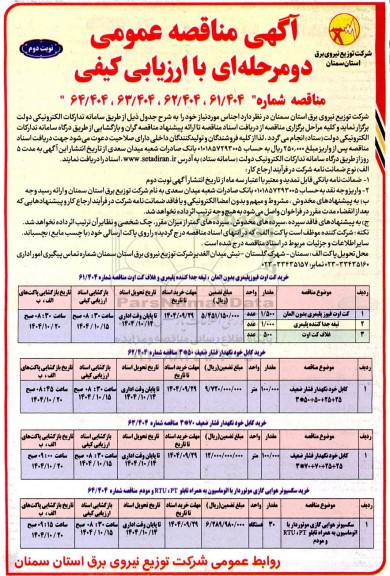 آگهی مناقصه عمومی
دومرحله‌ای با ارزیابی کیفی
نوبت دوم
شرکت توزیع نیروی برق
استان سمنان
مناقصه شماره" ۶۱/۴۰۴ ، ۶۲/۴۰۴ ، ۶۳/۴۰۴ ، ۶۴/۴۰۴ "
شرکت توزیع نیروی برق استان سمنان در نظر دارد اجناس موردنیاز خود را به شرح جدول ذیل از طریق سامانه تدارکات الکترونیکی دولت
برگزار نماید و کلیه مراحل برگزاری مناقصه از دریافت اسناد مناقصه تا ارائه پیشنهاد مناقصه گران و بازگشایی از طریق درگاه سامانه تدارکات
الکترونیکی دولت (ستاد) انجام می گردد . لذا از کلیه فروشندگان و تولیدکنندگان داخلی دارای صلاحیت دعوت می شود جهت دریافت اسناد
مناقصه پس از واریز مبلغ ۲۵۰،۰۰۰ ریال به حساب ۰۱۰۱۸۵۷۲۹۳۰۰۵ بانک صادرات شعبه میدان سعدی از تاریخ انتشار این آگهی به مدت ۵
روز از طریق درگاه سامانه تدارکات الکترونیک دولت (سامانه ستاد) به آدرس www.setadiran.ir ، اسناد را دریافت نمایند.
الف: نوع ضمانت نامه شرکت در فرآیند ارجاع کار :
۱- ضمانت نامه بانکی قابل تمدید و معتبر با اعتبار سه ماه از تاریخ انتشار آگهی نوبت دوم
۲- واریز وجه نقد به حساب ۰۱۰۱۸۵۷۲۹۳۰۰۵ بانک صادرات شعبه میدان سعدی به نام شرکت توزیع برق استان سمنان و ارائه رسید وجه
ب: به پیشنهادهای مخدوش ، مشروط و مبهم و بدون امضا الکترونیکی و یا فاقد ضمانت نامه شرکت در فرآیند ارجاع کار و پیشنهادهایی که
بعد از انقضاء مدت مقرر در فراخوان واصل می شود به هیچ وجه ترتیب اثر داده نخواهد شد.
ج: به پیشنهادهای فاقد سپرده ، سپرده های مخدوش ، سپرده های کمتر از میزان مقرر، چک شخصی و نظایر آن ترتیب اثر داده نخواهد شد.
نکته: شرکت کننده موظف است پاکت (الف) که در انتهای اسناد مناقصه درج گردیده را روی پاکت ارسالی خود (با چسب مایع) بچسباند.
سایر اطلاعات و جزئیات مربوط در اسناد مناقصه درج شده است .
محل تحویل پاکت الف: سمنان – شهرک گلستان – نبش میدان الغدیر شرکت توزیع برق استان سمنان شماره تماس پیگیری امور اداری
خرید کت اوت فیوز پلیمری بدون المان ، تیغه جدا کننده پلیمری و غلاف کت اوت مناقصه شماره ۶۱/۴۰۴
ردیف موضوع مناقصه مقدار واحد مبلغ تضمین (ریال) مهلت خرید اسناد تا تاریخ تاریخ تحویل اسناد بازگشایی اسناد ارزیابی کیفی تاریخ بازگشایی پاکت‌های الف ، ب
۱ کت اوت فیوز پلیمری بدون المان ۱/۵۰۰ عدد
۲ تیغه جدا کننده پلیمری ۱/۰۰۰ عدد
۳ غلاف کت اوت ۵۰۰ عدد
۱۴۰۴/۰۹/۲۹ تا پایان وقت اداری ۱۴۰۴/۱۰/۱۴ ساعت ۰۸:۳۰ صبح ۱۴۰۴/۱۰/۱۵ ساعت ۰۸:۳۰ صبح ۱۴۰۴/۱۰/۲۰
خرید کابل خود نگهدار فشار ضعیف ۵۰*۳ مناقصه شماره ۶۲/۴۰۴
ردیف موضوع مناقصه مقدار واحد مبلغ تضمین (ریال) مهلت خرید اسناد تا تاریخ تاریخ تحویل اسناد بازگشایی اسناد ارزیابی کیفی بازگشایی پاکت‌های الف ، ب
۱ کابل خود نگهدار فشار ضعیف ۳*۵۰+۵۰+۲۵+۲۵ ۱۰۰/۰۰۰ متر ۹/۷۲۰/۰۰۰/۰۰۰ ۱۴۰۴/۰۹/۲۹ تا پایان وقت اداری ۱۴۰۴/۱۰/۱۴ ساعت ۰۸:۳۰ صبح ۱۴۰۴/۱۰/۱۵ ساعت ۰۸:۴۵ صبح ۱۴۰۴/۱۰/۲۰
خرید کابل خود نگهدار فشار ضعیف ۷۰*۳ مناقصه شماره ۶۳/۴۰۴
ردیف موضوع مناقصه مقدار واحد مبلغ تضمین (ریال) مهلت خرید اسناد تا تاریخ تاریخ تحویل اسناد بازگشایی اسناد ارزیابی کیفی بازگشایی پاکت‌های الف ، ب
۱ کابل خود نگهدار فشار ضعیف ۳*۷۰+۷۰+۲۵+۲۵ ۱۰۰/۰۰۰ متر ۱۲/۰۰۰/۰۰۰/۰۰۰ ۱۴۰۴/۰۹/۲۹ تا پایان وقت اداری ۱۴۰۴/۱۰/۱۴ ساعت ۰۸:۳۰ صبح ۱۴۰۴/۱۰/۱۵ ساعت ۰۹:۰۰ صبح ۱۴۰۴/۱۰/۲۰
خرید سکسیونر هوایی گازی موتوردار با اتوماسیون به همراه تابلو RTU ، PT و مودم مناقصه شماره ۶۴/۴۰۴
ردیف موضوع مناقصه مقدار واحد مبلغ تضمین (ریال) مهلت خرید اسناد تا تاریخ تاریخ تحویل اسناد بازگشایی اسناد ارزیابی کیفی بازگشایی پاکت‌های الف ، ب
۱ سکسیونر هوایی گازی موتوردار با اتوماسیون به همراه تابلو RTU ، PT و مودم ۳۰ دستگاه ۶/۲۸۹/۹۸۰/۰۰۰ ۱۴۰۴/۰۹/۲۹ تا پایان وقت اداری ۱۴۰۴/۱۰/۱۴ ساعت ۰۸:۳۰ صبح ۱۴۰۴/۱۰/۱۵ ساعت ۰۹:۱۵ صبح ۱۴۰۴/۱۰/۲۰
روابط عمومی شرکت توزیع نیروی برق استان سمنان